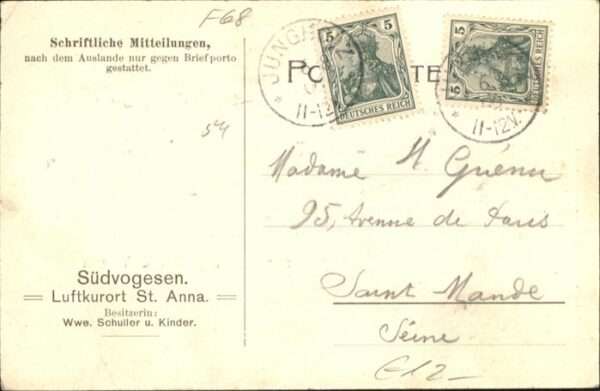 F68
Schriftliche Mitteilungen,
nach dem Auslande nur gegen Briefporto
gestattet.
54
Südvogesen.
Luftkurort St. Anna.
Besitzerin:
Wwe. Schuller u. Kinder.
5 5
DEUTSCHES REICH
5 5
DEUTSCHES REICH
11-12V.
Madame H. Guénu
95, Avenue de Paris
Saint Mandé
Seine
€12-